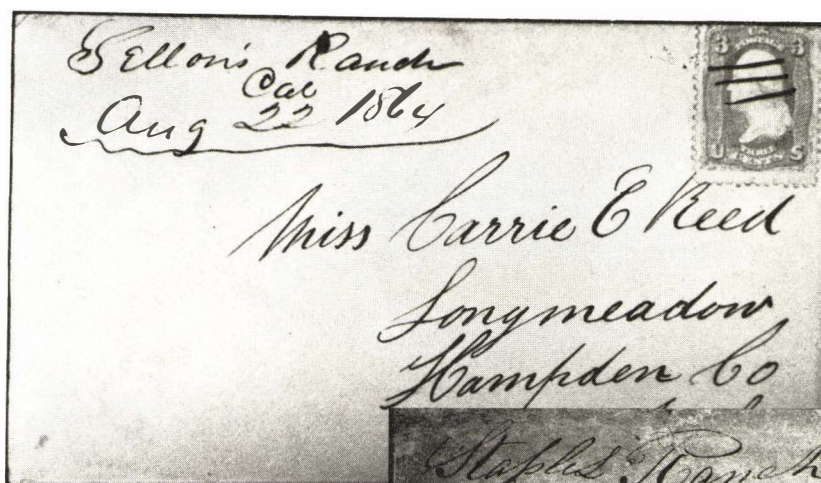 Sellon's Ranch
Cal
Aug 22 1864
3 3
U S
Miss Carrie E Reed
Longmeadow
Hampden Co
Staples Ranch